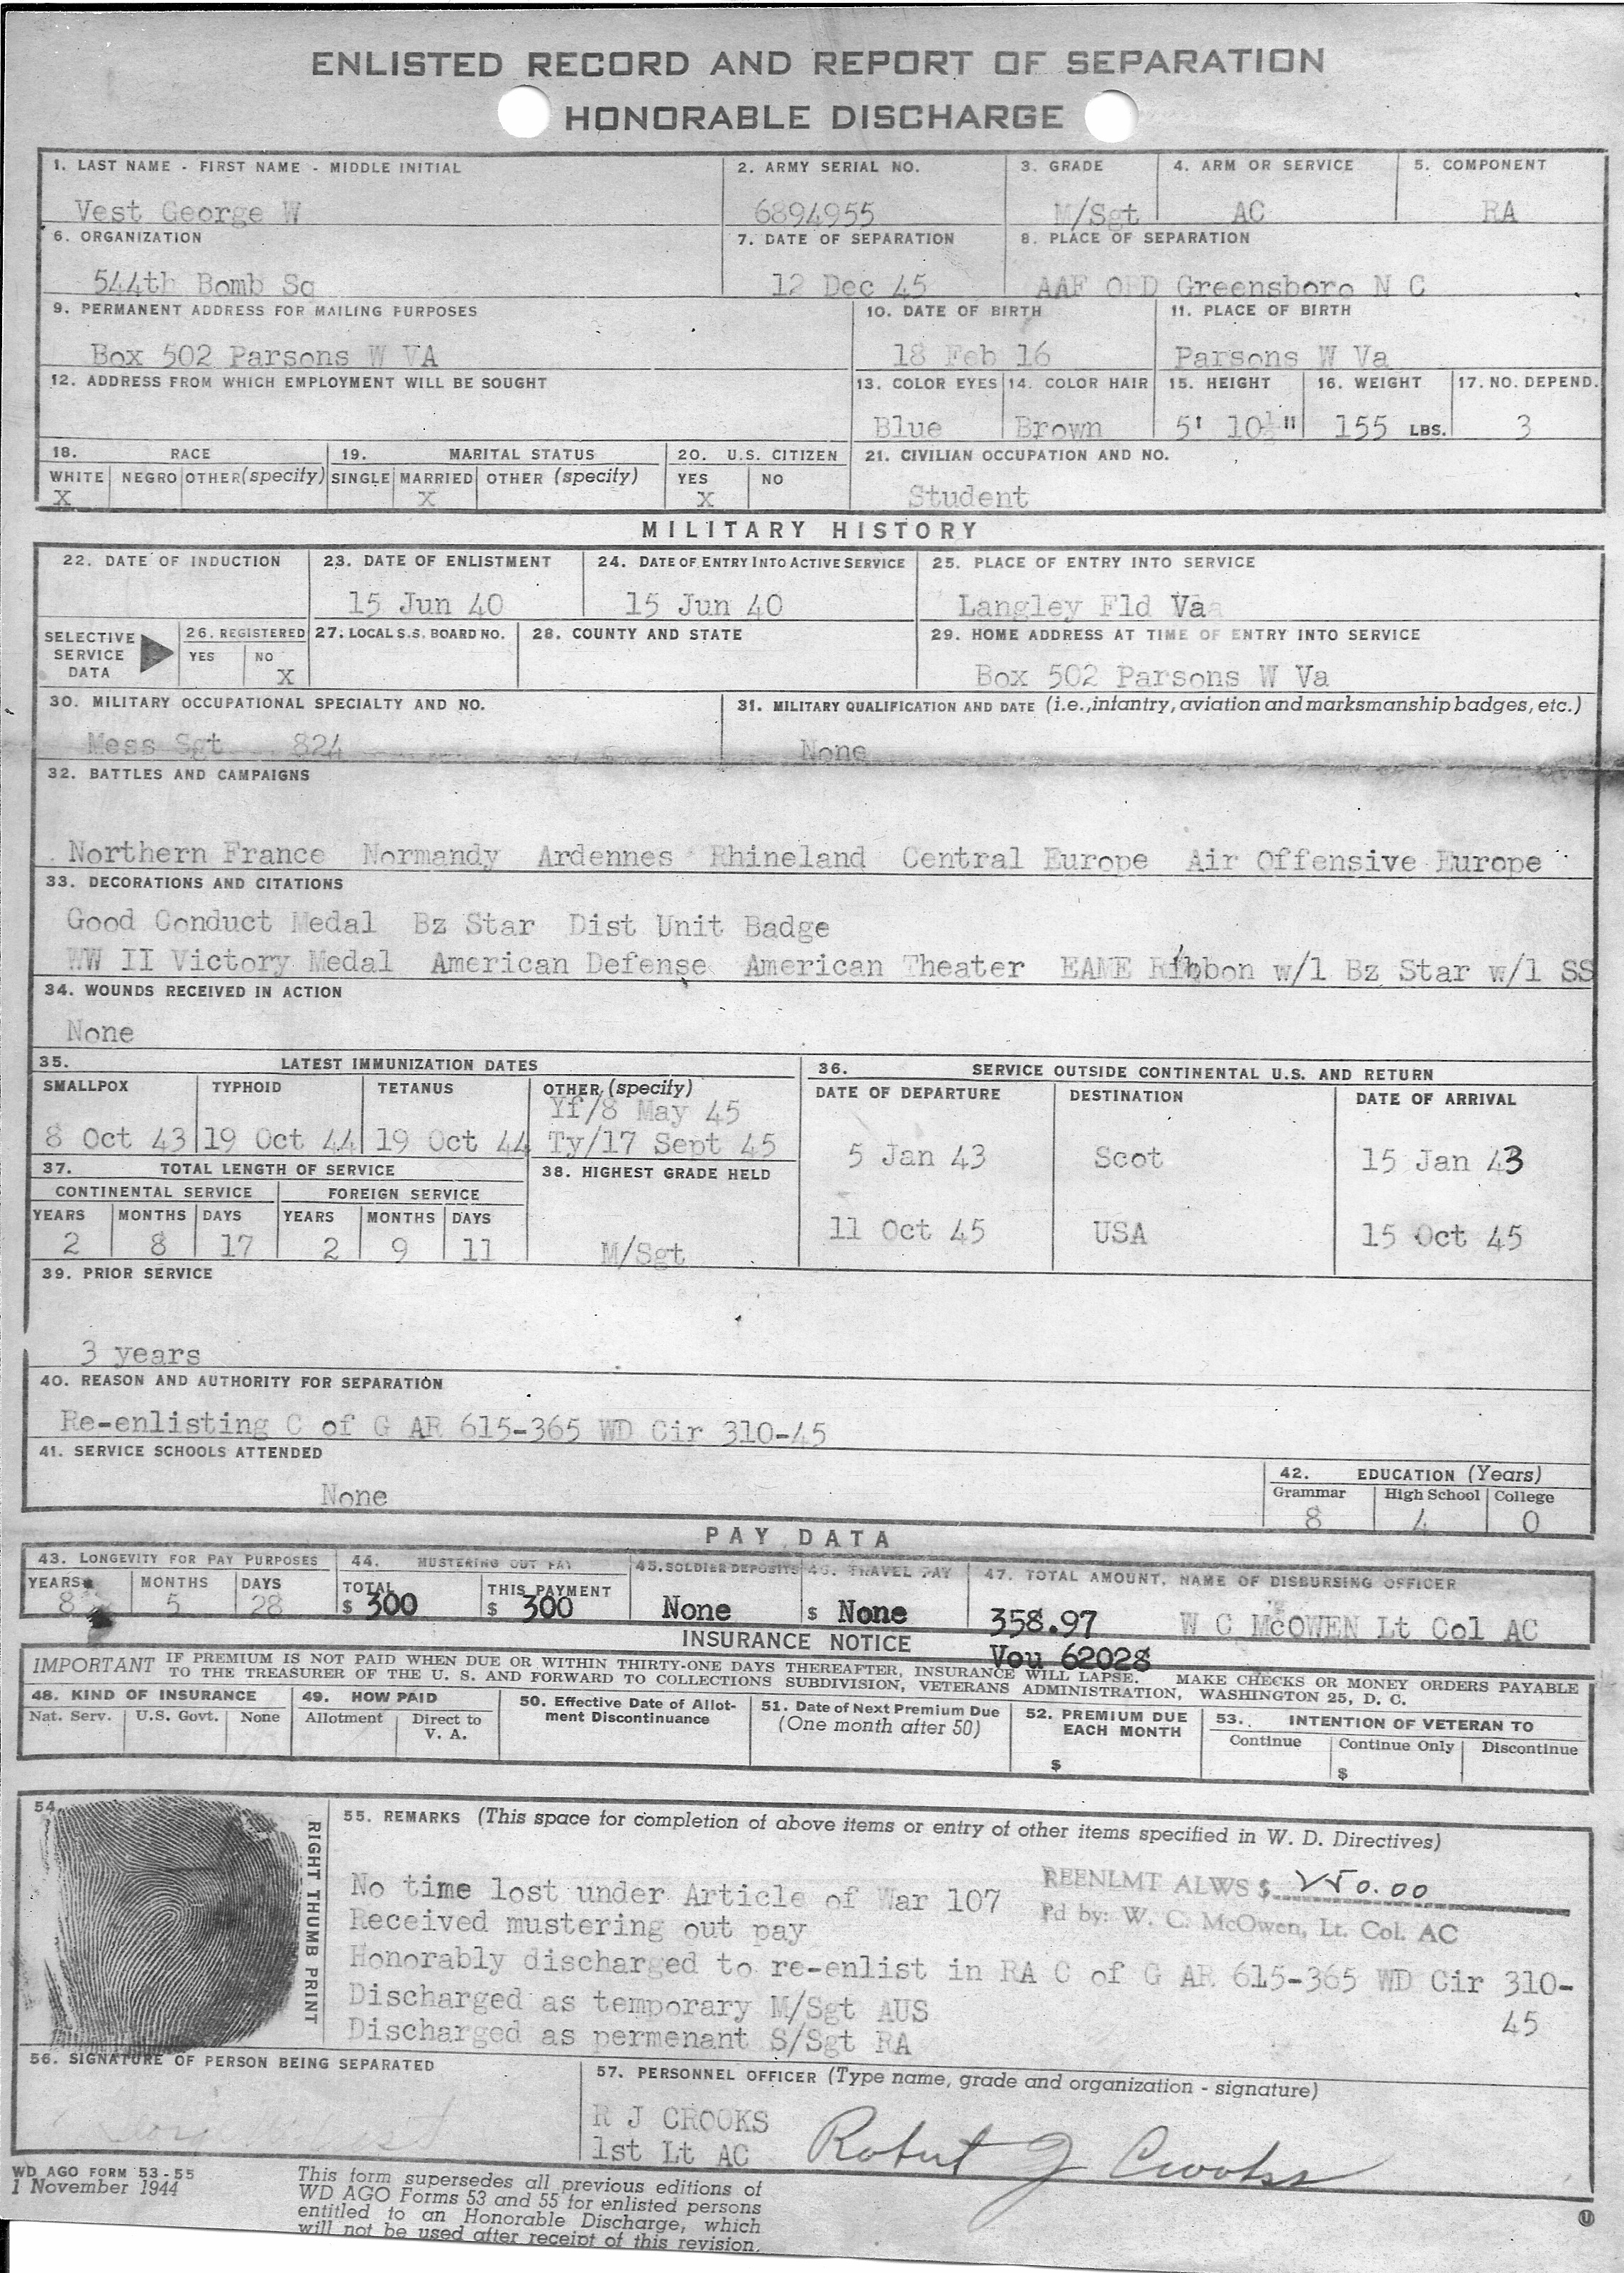 ENLISTED RECORD AND REPORT OF SEPARATION
HONORABLE DISCHARGE
1. LAST NAME - FIRST NAME - MIDDLE INITIAL
Vest George W
2. ARMY SERIAL NO.
6894955
3. GRADE
M/Sgt
4. ARM OR SERVICE
AC
5. COMPONENT
RA
6. ORGANIZATION
544th Bomb Sq
7. DATE OF SEPARATION
12 Dec 45
8. PLACE OF SEPARATION
AAF ORD Greensboro N C
9. PERMANENT ADDRESS FOR MAILING PURPOSES
Box 502 Parsons W VA
10. DATE OF BIRTH
18 Feb 16
11. PLACE OF BIRTH
Parsons W Va
12. ADDRESS FROM WHICH EMPLOYMENT WILL BE SOUGHT
13. COLOR EYES
Blue
14. COLOR HAIR
Brown
15. HEIGHT
5' 10½"
16. WEIGHT
155 LBS.
17. NO. DEPEND.
3
18. RACE
WHITE NEGRO OTHER (specify)
X
19. MARITAL STATUS
SINGLE MARRIED OTHER (specify)
X
20. U.S. CITIZEN
YES NO
X
21. CIVILIAN OCCUPATION AND NO.
Student
MILITARY HISTORY
22. DATE OF INDUCTION
23. DATE OF ENLISTMENT
15 Jun 40
24. DATE OF ENTRY INTO ACTIVE SERVICE
15 Jun 40
25. PLACE OF ENTRY INTO SERVICE
Langley Fld Va
SELECTIVE SERVICE DATA
26. REGISTERED
YES NO
X
27. LOCAL S.S. BOARD NO.
28. COUNTY AND STATE
29. HOME ADDRESS AT TIME OF ENTRY INTO SERVICE
Box 502 Parsons W Va
30. MILITARY OCCUPATIONAL SPECIALTY AND NO.
Mess Sgt 824
31. MILITARY QUALIFICATION AND DATE (i.e., infantry, aviation and marksmanship badges, etc.)
None
32. BATTLES AND CAMPAIGNS
Northern France Normandy Ardennes Rhineland Central Europe Air Offensive Europe
33. DECORATIONS AND CITATIONS
Good Conduct Medal Bz Star Dist Unit Badge
WW II Victory Medal American Defense American Theater EAME Ribbon w/1 Bz Star w/1 SS
34. WOUNDS RECEIVED IN ACTION
None
35. LATEST IMMUNIZATION DATES
SMALLPOX TYPHOID TETANUS OTHER (specify)
Yf/8 May 45
8 Oct 43 19 Oct 44 19 Oct 44 Ty/17 Sept 45
36. SERVICE OUTSIDE CONTINENTAL U.S. AND RETURN
DATE OF DEPARTURE DESTINATION DATE OF ARRIVAL
5 Jan 43 Scot 15 Jan 43
11 Oct 45 USA 15 Oct 45
37. TOTAL LENGTH OF SERVICE
CONTINENTAL SERVICE FOREIGN SERVICE
YEARS MONTHS DAYS YEARS MONTHS DAYS
2 8 17 2 9 11
38. HIGHEST GRADE HELD
M/Sgt
39. PRIOR SERVICE
3 years
40. REASON AND AUTHORITY FOR SEPARATION
Re-enlisting C of G AR 615-365 WD Cir 310-45
41. SERVICE SCHOOLS ATTENDED
None
42. EDUCATION (Years)
Grammar High School College
8 4 0
PAY DATA
43. LONGEVITY FOR PAY PURPOSES
YEARS MONTHS DAYS
8 5 28
44. MUSTERING OUT PAY
TOTAL THIS PAYMENT
$ 300 $ 300
45. SOLDIER DEPOSITS
None
46. TRAVEL PAY
$ None
47. TOTAL AMOUNT, NAME OF DISBURSING OFFICER
358.97 W C McOWEN Lt Col AC
Vou 62028
INSURANCE NOTICE
IMPORTANT IF PREMIUM IS NOT PAID WHEN DUE OR WITHIN THIRTY-ONE DAYS THEREAFTER, INSURANCE WILL LAPSE. MAKE CHECKS OR MONEY ORDERS PAYABLE
TO THE TREASURER OF THE U. S. AND FORWARD TO COLLECTIONS SUBDIVISION, VETERANS ADMINISTRATION, WASHINGTON 25, D. C.
48. KIND OF INSURANCE
Nat. Serv. U.S. Govt. None
49. HOW PAID
Allotment Direct to V. A.
50. Effective Date of Allotment Discontinuance
51. Date of Next Premium Due
(One month after 50)
52. PREMIUM DUE EACH MONTH
$
53. INTENTION OF VETERAN TO
Continue Continue Only Discontinue
$
54.
RIGHT THUMB PRINT
55. REMARKS (This space for completion of above items or entry of other items specified in W. D. Directives)
REENLMT ALWS $ 250.00
Pd by: W. C. McOwen, Lt. Col. AC
No time lost under Article of War 107
Received mustering out pay
Honorably discharged to re-enlist in RA C of G AR 615-365 WD Cir 310-
45
Discharged as temporary M/Sgt AUS
Discharged as permenant S/Sgt RA
56. SIGNATURE OF PERSON BEING SEPARATED
57. PERSONNEL OFFICER (Type name, grade and organization - signature)
R J CROOKS
1st Lt AC
Robert J Crooks
WD AGO FORM 53-55
1 November 1944
This form supersedes all previous editions of
WD AGO Forms 53 and 55 for enlisted persons
entitled to an Honorable Discharge, which
will not be used after receipt of this revision.